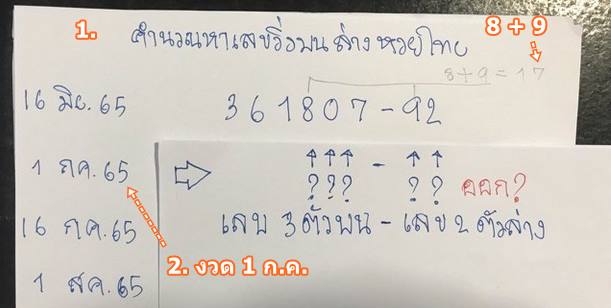 1. คำนวณหาเลขวิ่งบน ล่าง หวยไทย 8 + 9
8+9 = 17
16 มิย. 65 361807 - 92
1 กค. 65 ⇨ ↑↑↑ - ↑↑
??? ?? ออก?
16 กค. 65 เลข 3 ตัวบน - เลข 2 ตัวล่าง
2. งวด 1 ก.ค.
1 สค. 65